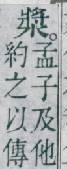 漿。孟子及他
約之以傳